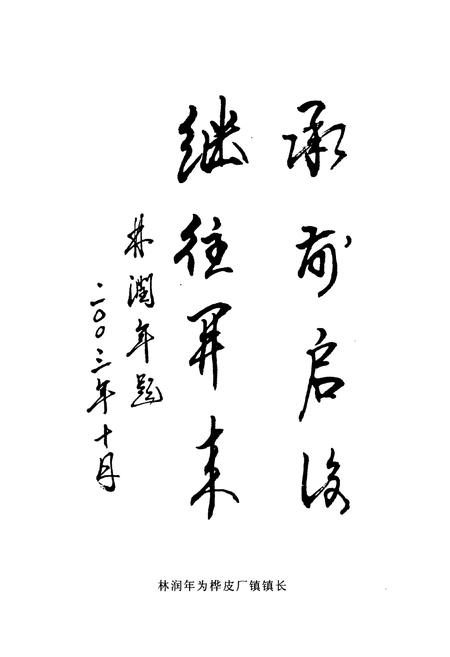 承前启後
继往開来
林润年题
二〇〇三年十月
林润年为桦皮厂镇镇长